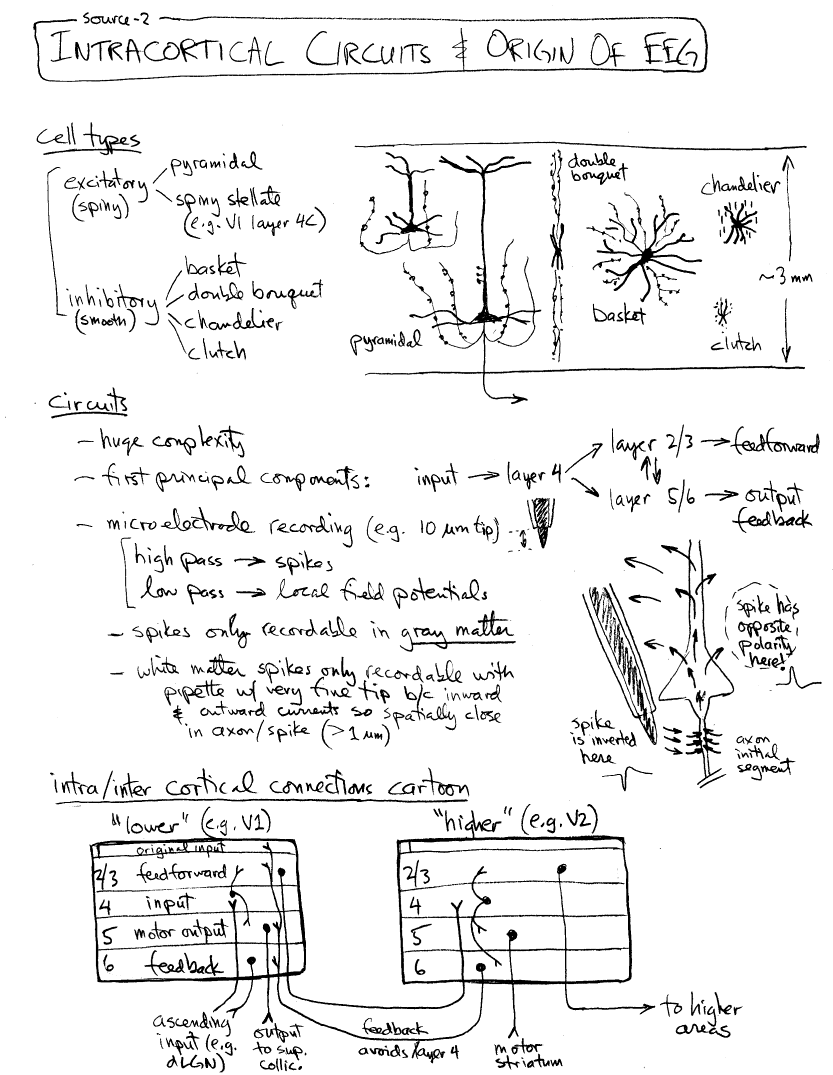 source-2
INTRACORTICAL CIRCUITS & ORIGIN OF EEG
Cell types
excitatory
(spiny)
pyramidal
spiny stellate
(e.g. V1 layer 4C)
inhibitory
(smooth)
basket
double bouquet
chandelier
clutch
pyramidal
double
bouquet
basket
chandelier
clutch
~3 mm
Circuits
– huge complexity
– first principal components: input → layer 4
layer 2/3 → feedforward
layer 5/6 → output
feedback
– microelectrode recording (e.g. 10 μm tip)
high pass → spikes
low pass → local field potentials
– spikes only recordable in gray matter
– white matter spikes only recordable with
pipette w/ very fine tip b/c inward
& outward currents so spatially close
in axon/spike (>1 μm)
spike has
opposite
polarity
here!
spike
is inverted
here
axon
initial
segment
intra/inter cortical connections cartoon
"lower" (e.g. V1)
1 original input
2/3 feedforward
4 input
5 motor output
6 feedback
ascending
input (e.g.
dLGN)
output
to sup.
collic.
"higher" (e.g. V2)
1
2/3
4
5
6
feedback
avoids layer 4
motor
striatum
to higher
areas